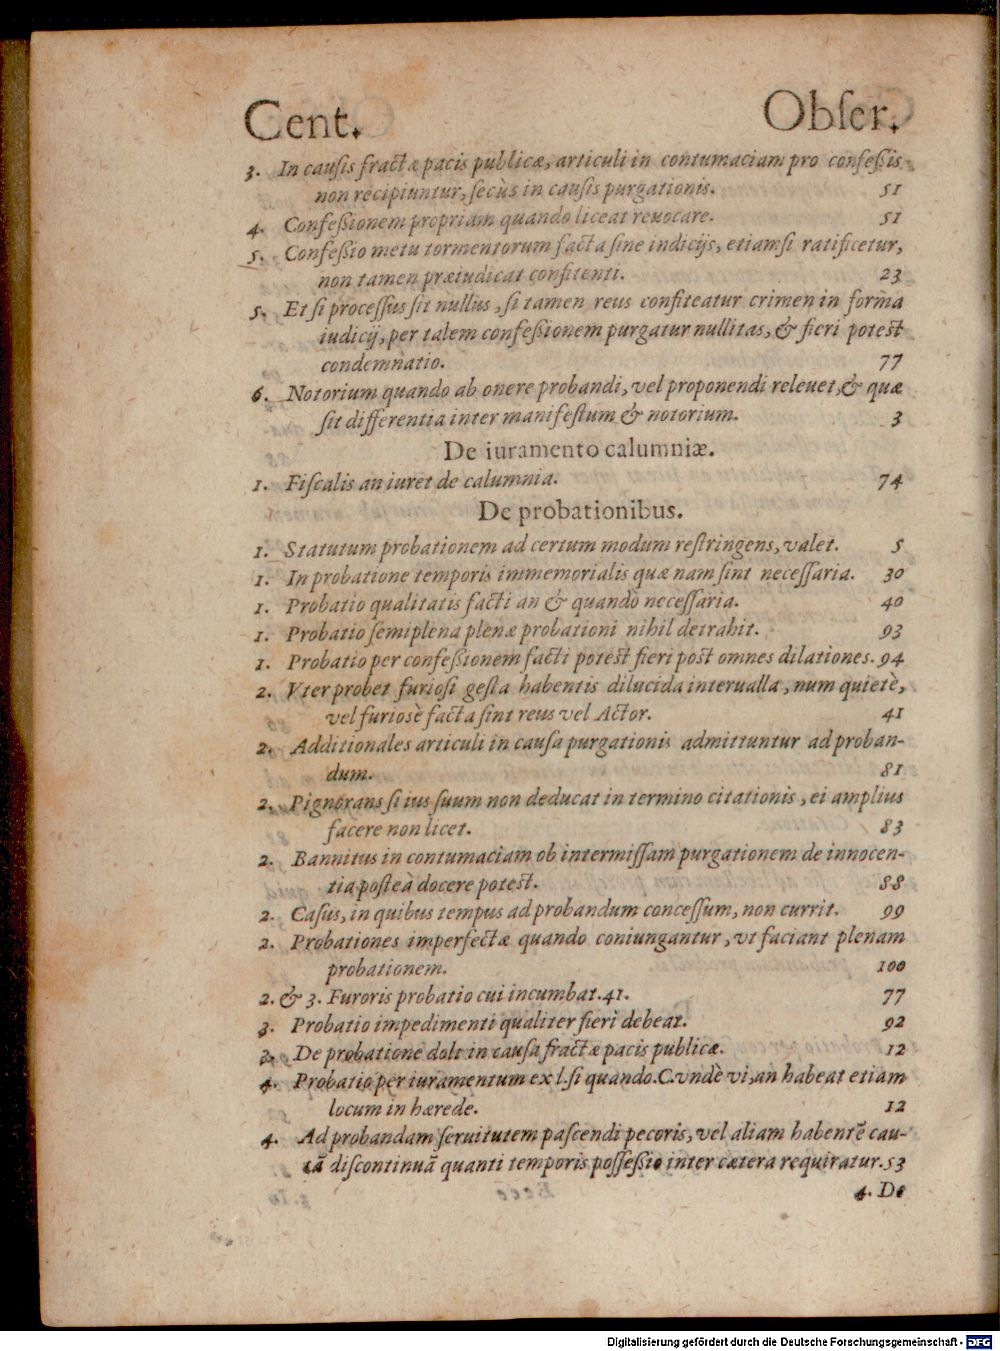 Cent. Obſer.
3. In cauſis fractæ pacis publicæ, articuli in contumaciam pro confeſsis
non recipiuntur, ſecùs in cauſis purgationis. 51
4. Confeſsionem propriam quando liceat reuocare. 51
5. Confeſsio metu tormentorum facta ſine indicijs, etiamſi ratificetur,
non tamen præiudicat confitenti. 23
5. Et ſi proceſſus ſit nullus, ſi tamen reus confiteatur crimen in forma
iudicij, per talem confeſsionem purgatur nullitas, & fieri potest
condemnatio. 77
6. Notorium quando ab onere probandi, vel proponendi releuet, & quæ
ſit differentia inter manifeſtum & notorium. 3
De iuramento calumniæ.
1. Fiſcalis an iuret de calumnia. 74
De probationibus.
1. Statutum probationem ad certum modum reſtringens, valet. 5
1. In probatione temporis immemorialis quæ nam ſint neceſſaria. 30
1. Probatio qualitatis facti an & quandò neceſſaria. 40
1. Probatio ſemiplena plenæ probationi nihil detrahit. 93
1. Probatio per confeſsionem facti potest fieri post omnes dilationes. 94
2. Vter probet furioſi geſta habentis dilucida interualla, num quietè,
vel furiosè facta ſint reus vel Actor. 41
2. Additionales articuli in cauſa purgationis admittuntur ad proban-
dum. 81
2. Pignorans ſi ius ſuum non deducat in termino citationis, ei amplius
facere non licet. 83
2. Bannitus in contumaciam ob intermiſſam purgationem de innocen-
tia poſteà docere potest. 88
2. Caſus, in quibus tempus ad probandum conceſſum, non currit. 99
2. Probationes imperfectæ quando coniungantur, vt faciant plenam
probationem. 100
2. & 3. Furoris probatio cui incumbat. 41. 77
3. Probatio impedimenti qualiter fieri debeat. 92
3. De probatione doli in cauſa fractæ pacis publicæ. 12
4. Probatio per iuramentum ex l. ſi quando. C. vndè vi, an habeat etiam
locum in hærede. 12
4. Ad probandam ſeruitutem paſcendi pecoris, vel aliam habentē cau-
ſā diſcontinuā quanti temporis poſſeſsio inter cætera requiratur. 53
4. De
Digitalisierung gefördert durch die Deutsche Forschungsgemeinschaft - DFG